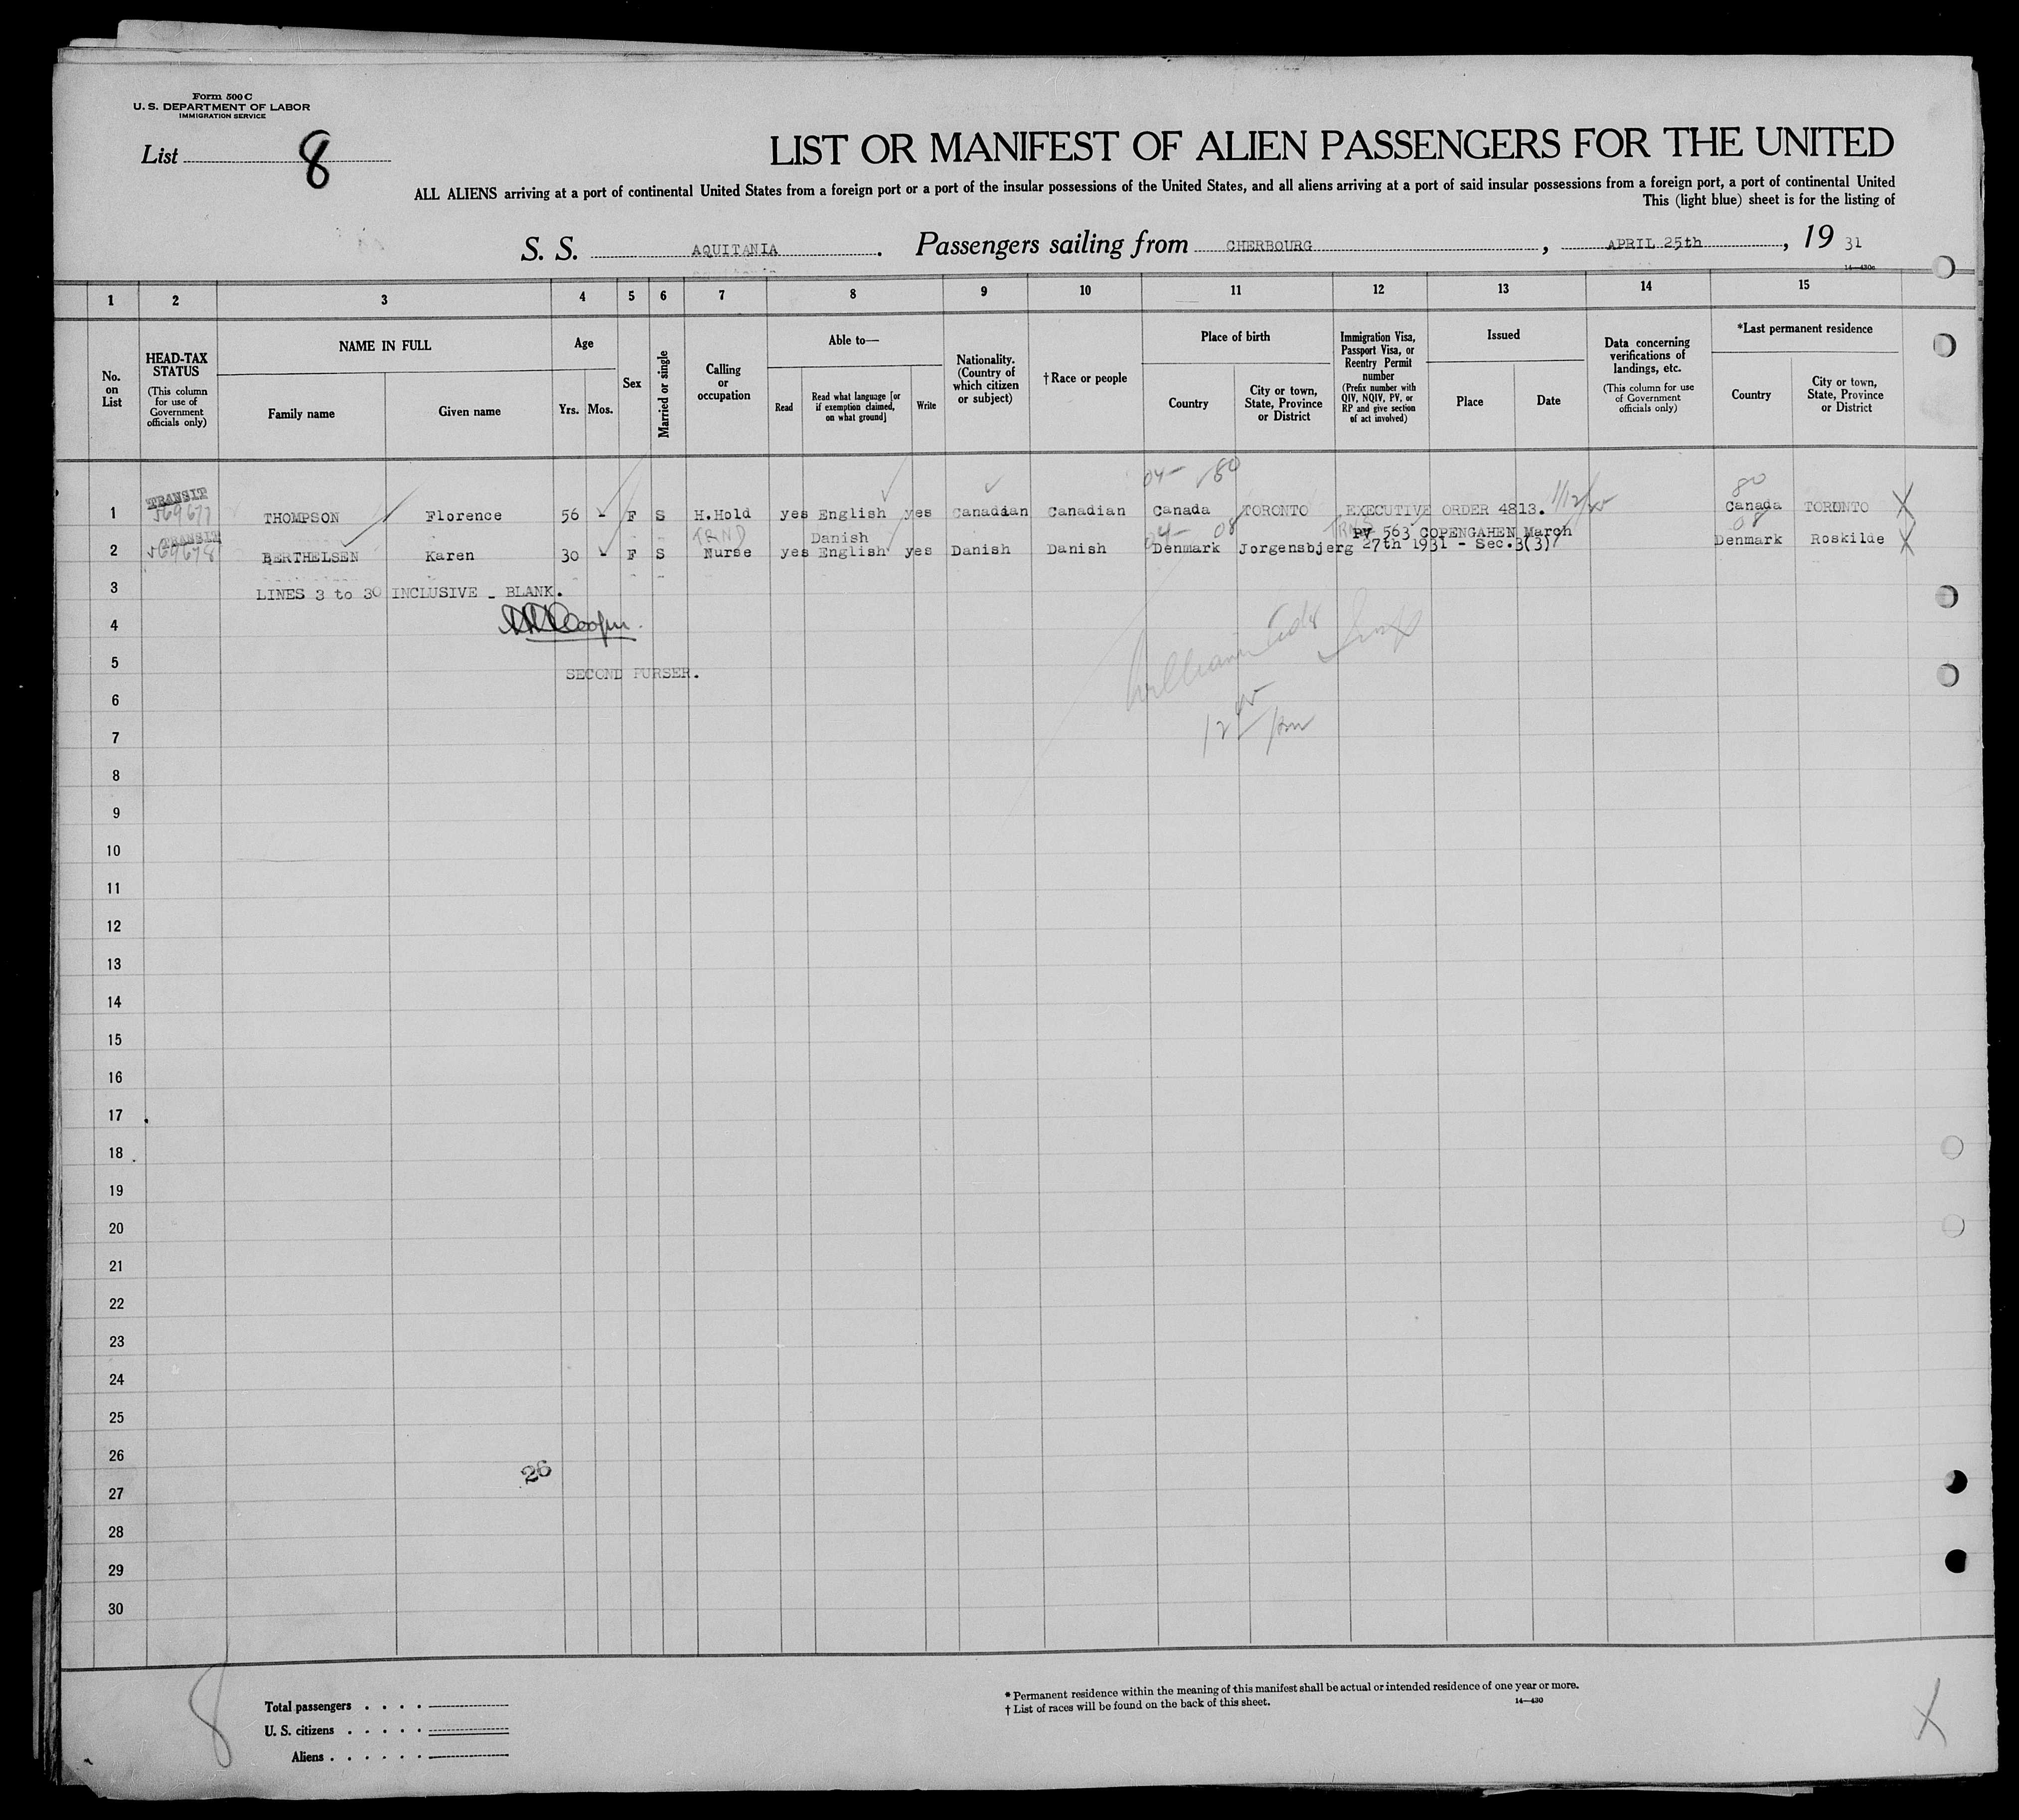 Form 500 C
U. S. DEPARTMENT OF LABOR
IMMIGRATION SERVICE
List 8
LIST OR MANIFEST OF ALIEN PASSENGERS FOR THE UNITED
ALL ALIENS arriving at a port of continental United States from a foreign port or a port of the insular possessions of the United States, and all aliens arriving at a port of said insular possessions from a foreign port, a port of continental United
This (light blue) sheet is for the listing of
S. S. AQUITANIA. Passengers sailing from CHERBOURG, APRIL 25th, 19 31
14—430c
1 2 3 4 5 6 7 8 9 10 11 12 13 14 15
No. on List
HEAD-TAX STATUS
(This column for use of Government officials only)
NAME IN FULL
Family name
Given name
Age
Yrs. Mos.
Sex
Married or single
Calling or occupation
Able to—
Read
Read what language [or if exemption claimed, on what ground]
Write
Nationality. (Country of which citizen or subject)
† Race or people
Place of birth
Country
City or town, State, Province or District
Immigration Visa, Passport Visa, or Reentry Permit number
(Prefix number with QIV, NQIV, PV, or RP and give section of act involved)
Issued
Place
Date
Data concerning verifications of landings, etc.
(This column for use of Government officials only)
*Last permanent residence
Country
City or town, State, Province or District
04— 80 80
TRANSIT
1 69677 THOMPSON Florence 56 - F S H.Hold yes English yes Canadian Canadian Canada TORONTO EXECUTIVE ORDER 4813. Canada TORONTO X
TRANSIT TRND Danish 04— 08 PV 563 COPENGAHEN March 08
2 69678 BERTHELSEN Karen 30 - F S Nurse yes English yes Danish Danish Denmark Jorgensbjerg 27th 1931 - Sec.3(3) Denmark Roskilde X
3 LINES 3 to 30 INCLUSIVE - BLANK.
4 Cooper.
5 SECOND PURSER.
6
7
8
9
10
11
12
13
14
15
16
17
18
19
20
21
22
23
24
25
26
26
27
28
29
30
8
Total passengers . . . .
U. S. citizens . . . . .
Aliens . . . . . .
* Permanent residence within the meaning of this manifest shall be actual or intended residence of one year or more.
† List of races will be found on the back of this sheet.
14—430
X